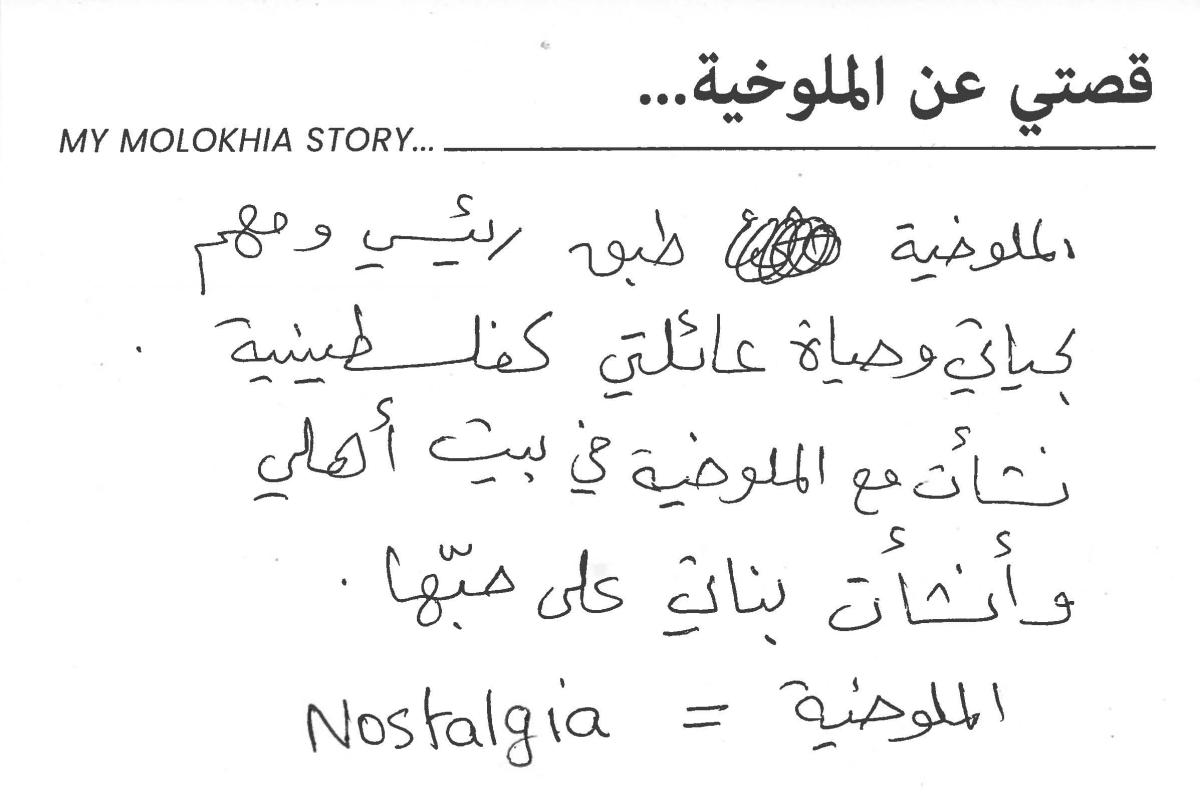 قصتي عن الملوخية...
MY MOLOKHIA STORY...
الملوخية طبق رئيسي ومهم
بحياتي وحياة عائلتي كفلسطينية .
نشأت مع الملوخية في بيت أهلي
وأنشأت بناتي على حبّها .
الملوخية = Nostalgia